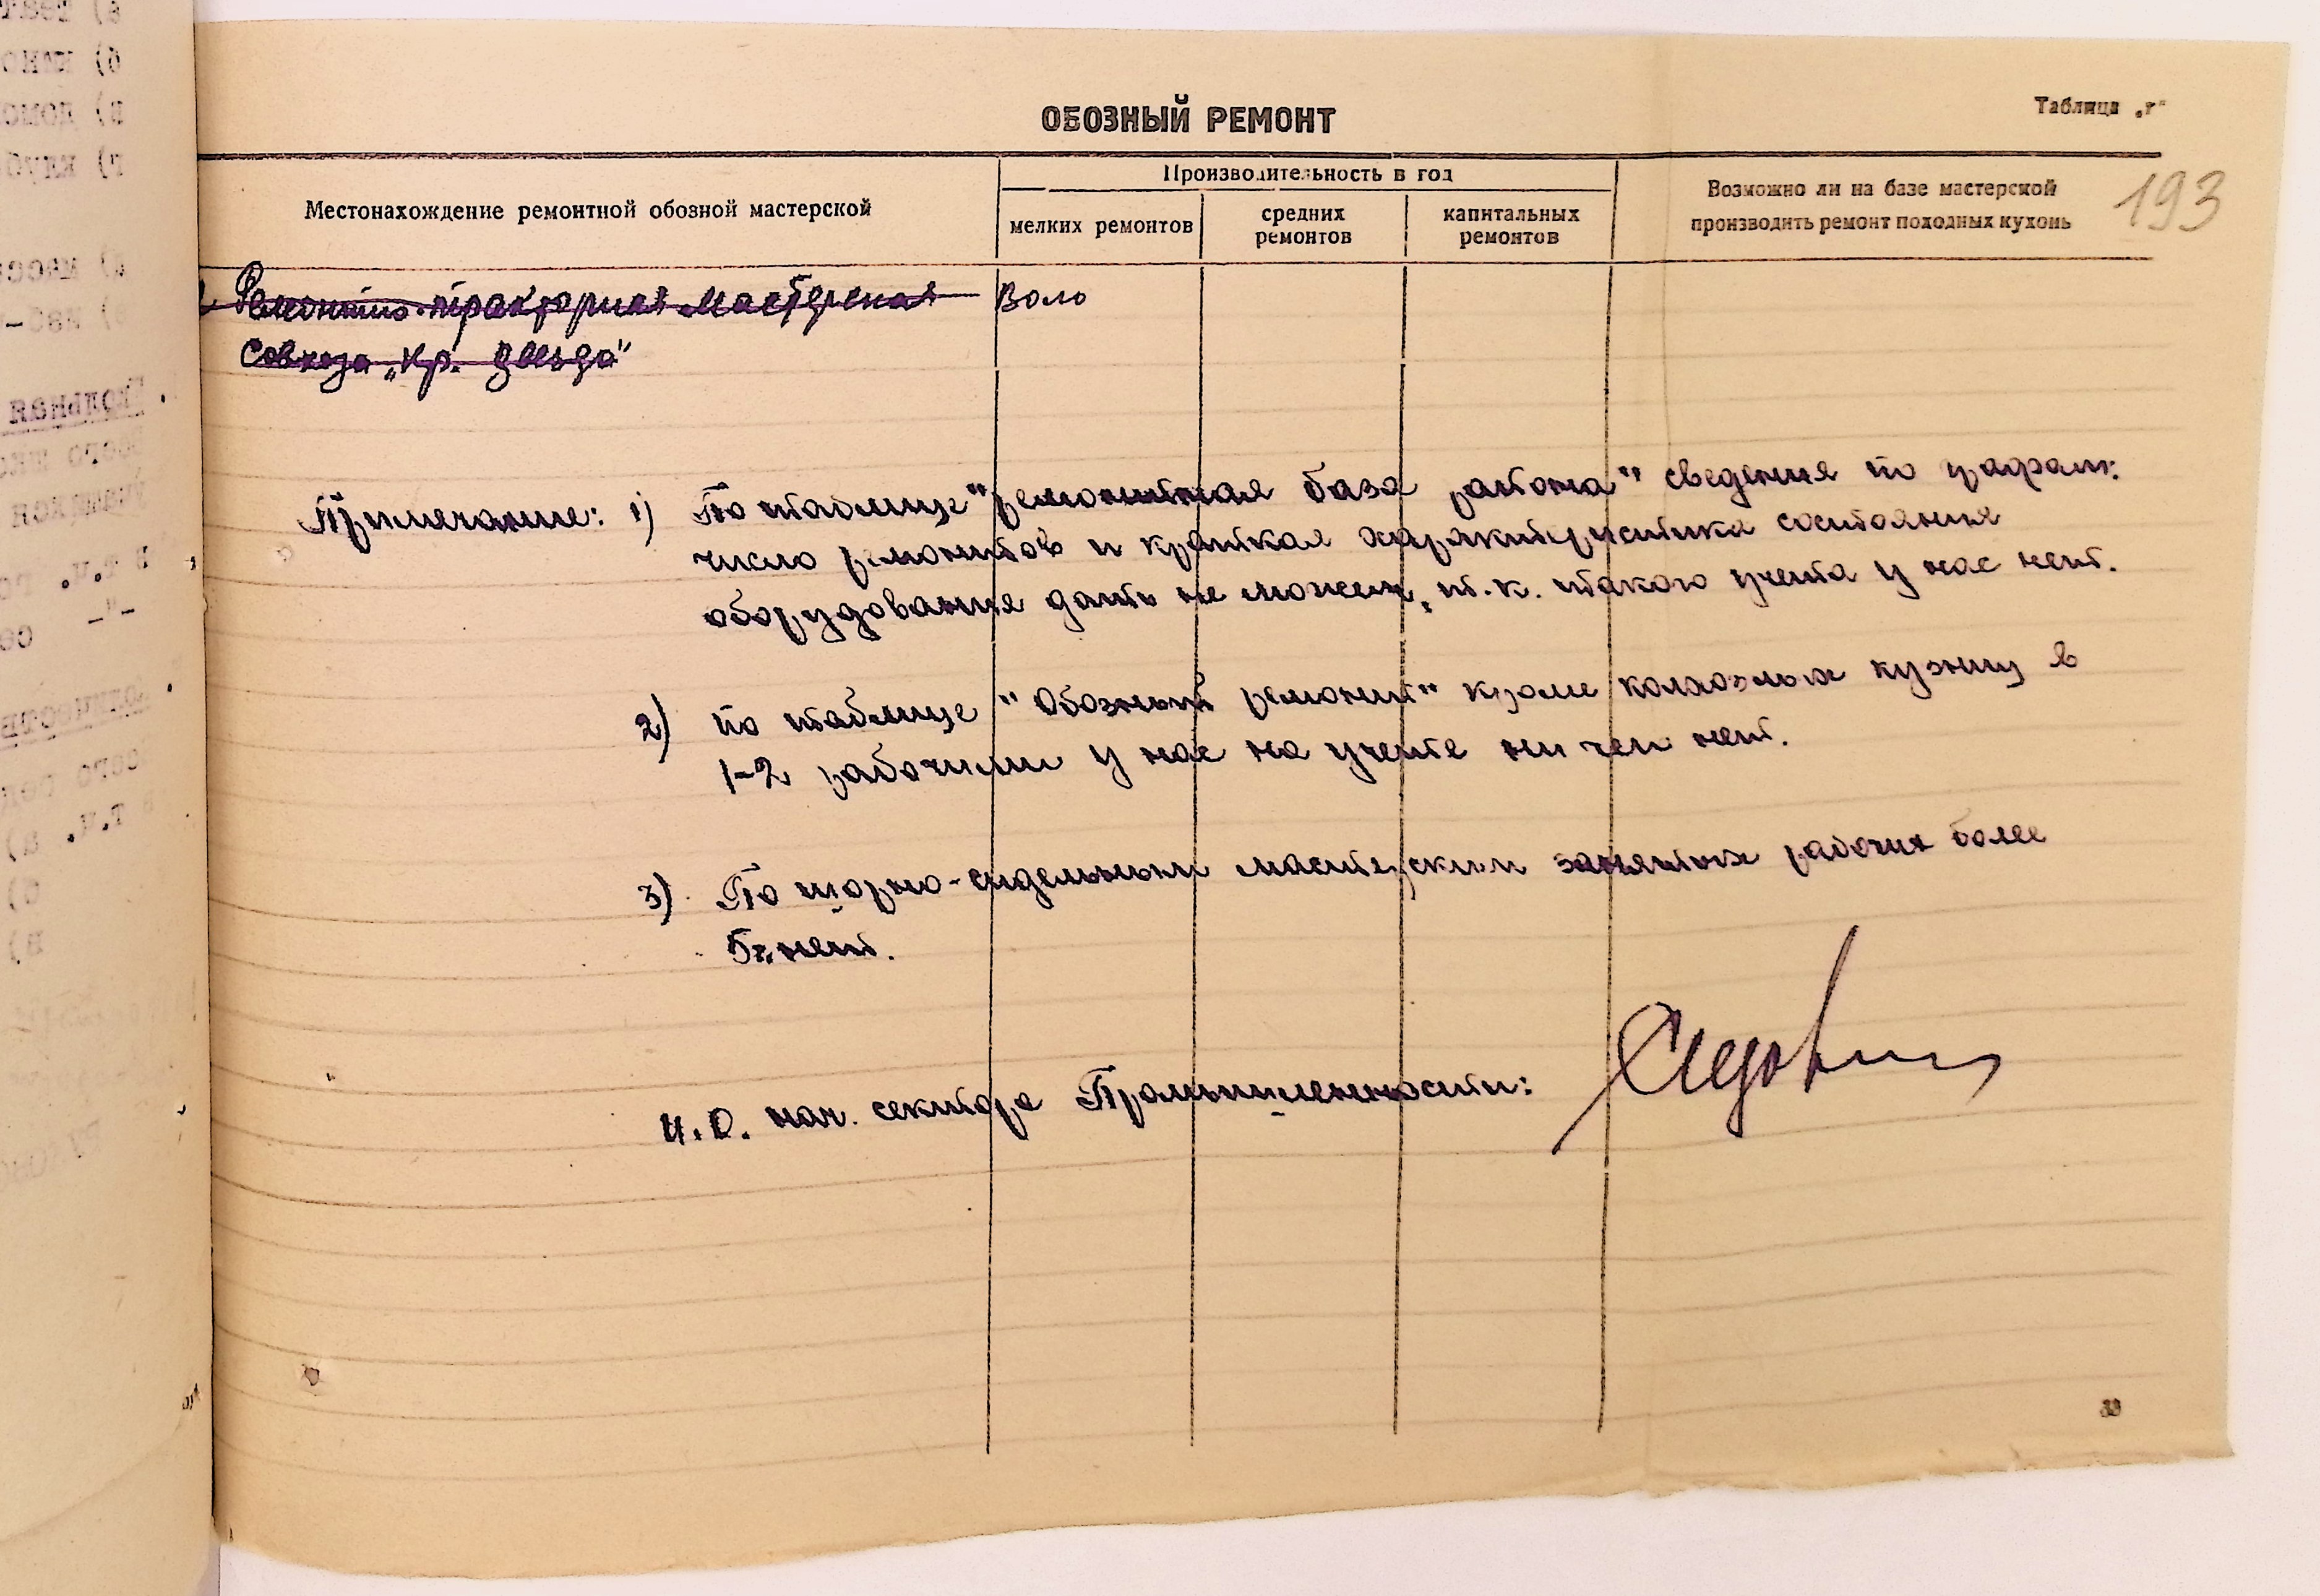 ОБОЗНЫЙ РЕМОНТ
Таблица „г"
193
Местонахождение ремонтной обозной мастерской
Производительность в год
мелких ремонтов
средних
ремонтов
капитальных
ремонтов
Возможно ли на базе мастерской
производить ремонт походных кухонь
Ремонтно-тракторная мастерская
Воло
Совхоза „Кр. Звезда"
Примечание: 1) По таблице "ремонтная база района" сведения по графам:
число ремонтов и краткая характеристика состояния
оборудования дать не можем, т.к. такого учета у нас нет.
2) по таблице "Обозный ремонт" кроме колхозных кузниц в
1-2 рабочими у нас на учете ни чего нет.
3) По шорно-сидельным мастерским занятых рабочих более
5ти нет.
И.О. нач. сектора Промышленности:
33